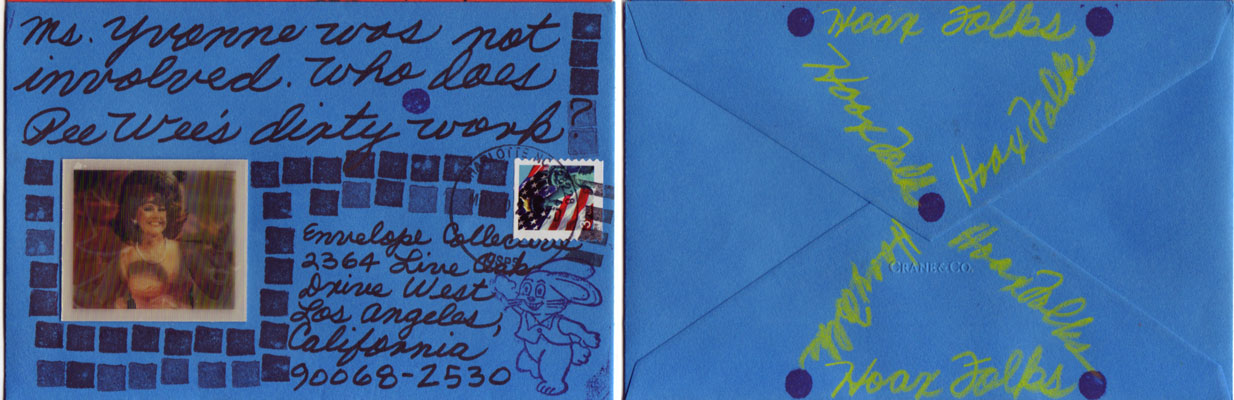 Ms. Yvonne was not
involved. Who does
Pee Wee's dirty work?
Envelope Collective
2364 Live Oak
Drive West
Los Angeles,
California
90068-2530
USPS
Hoax Folks
Hoax Folks
Hoax Folks
CRANE&CO.
Hoax Folks
Hoax Folks
Hoax Folks